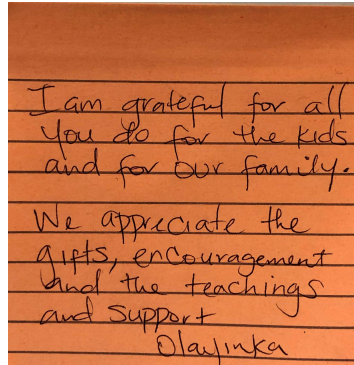 I am grateful for all
you do for the kids
and for our family.
We appreciate the
gifts, encouragement
and the teachings
and support
Olayinka